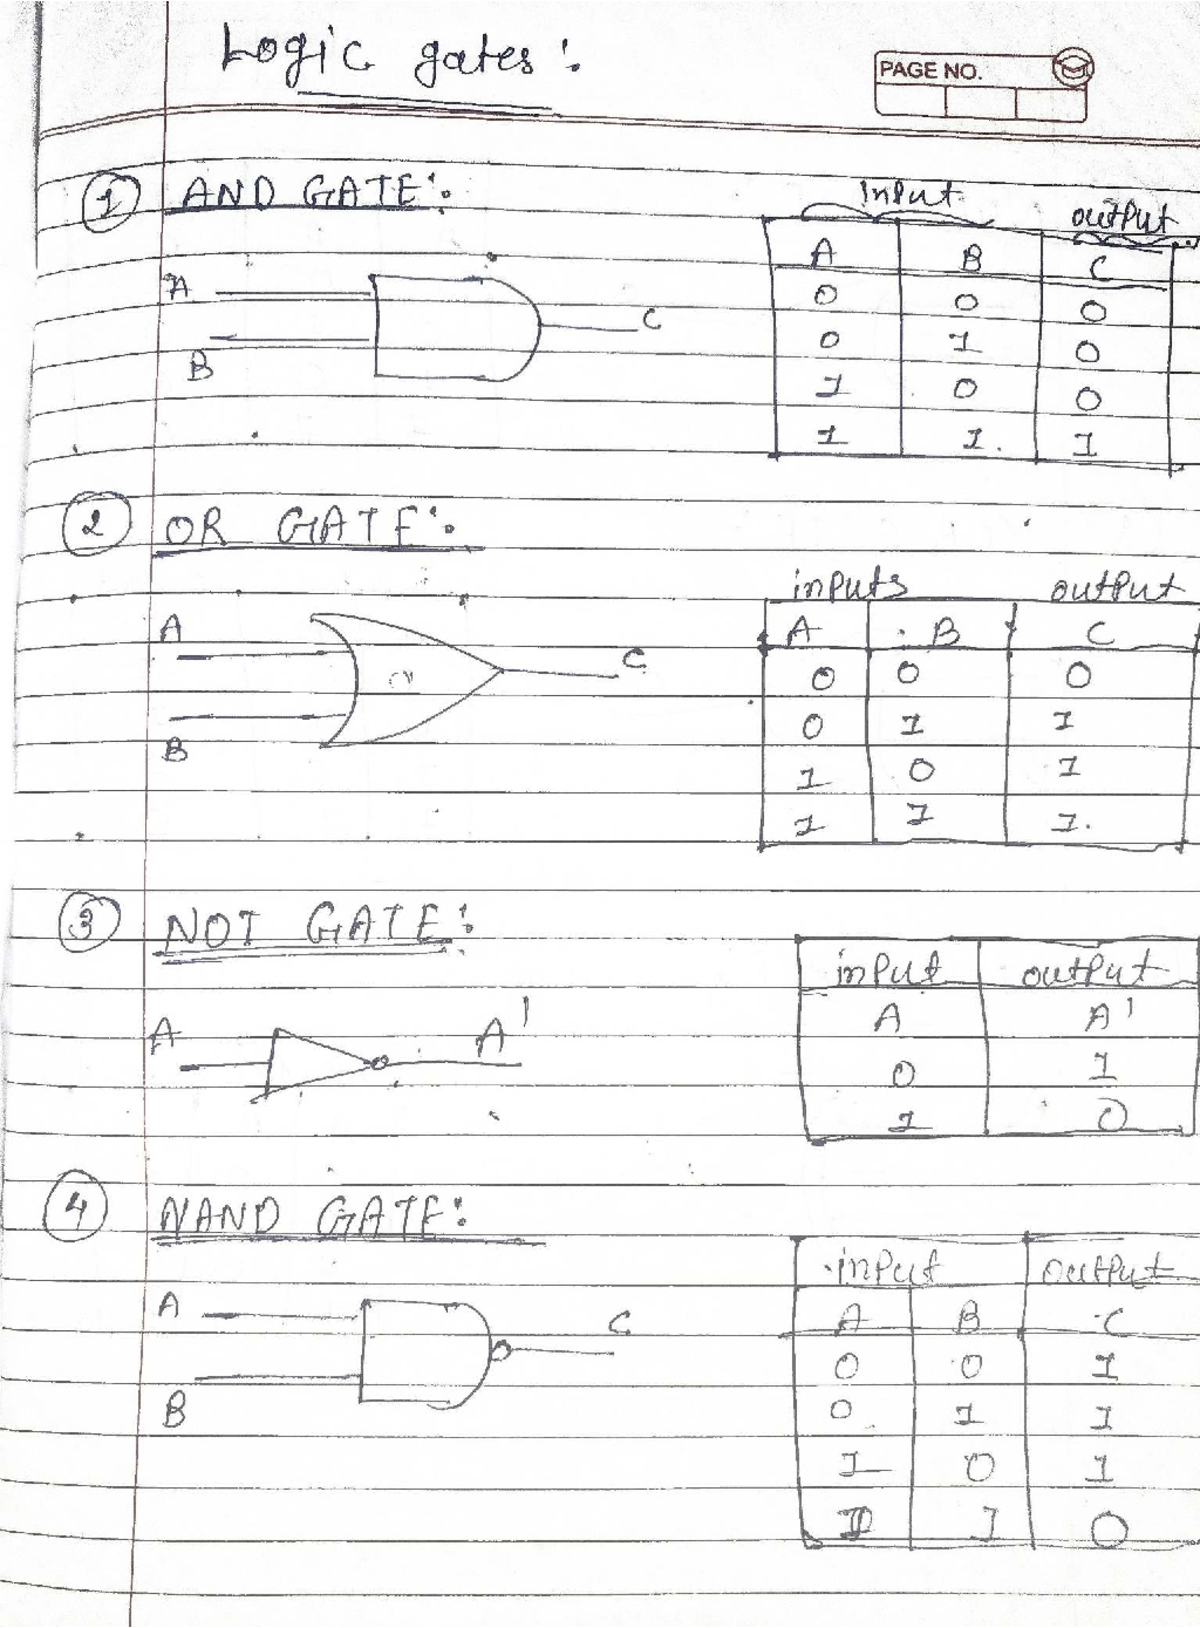 Logic gates:
PAGE NO.
① AND GATE:
input output
A B C
A
0 0 0
C
0 1 0
B
1 0 0
1 1 1
② OR GATE:
inputs output
A
A B C
C
0 0 0
0 1 1
B
1 0 1
1 1 1
③ NOT GATE:
input output
A A'
A A'
0 1
1 0
④ NAND GATE:
input output
A C
A B C
0 0 1
B
0 1 1
1 0 1
1 1 0